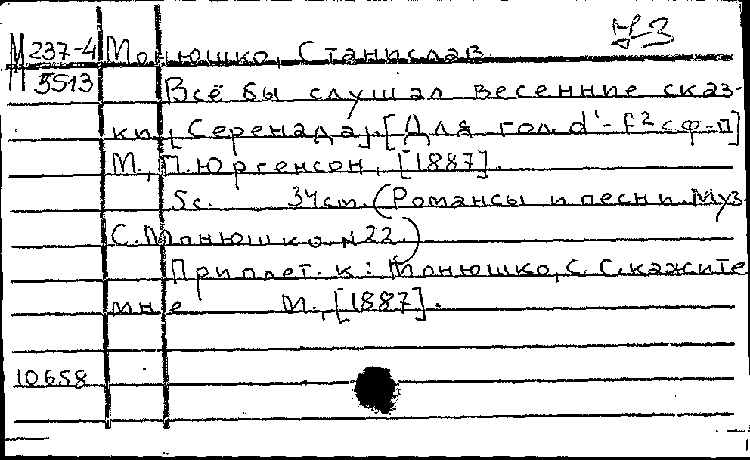 М 237-4 Монюшко, Станислав
5513 Всё бы слушал весенние сказ-
ки. [Серенада]. [Для гол. d'-f² с ф-п]
М., П. Юргенсон, [1887].
5с. 34cm. (Романсы и песни. Муз.
С. Монюшко. N 22.)
Приплет. к: Монюшко, С. Скажите
мне М., [1887].
10658